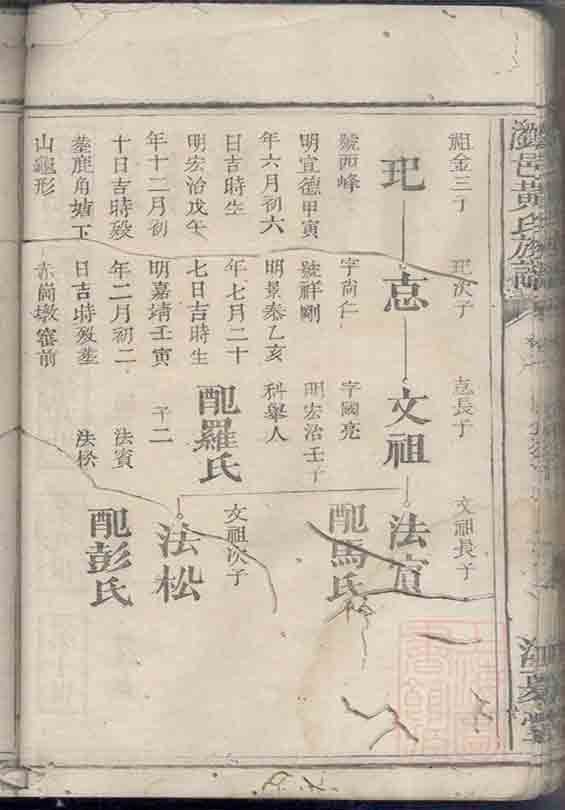 瀏邑黃氏族譜
江夏堂
祖金三子
玘
號西峰
明宣德甲寅
年六月初六
日吉時生
明宏治戊午
年十二月初
十日吉時歿
塟鹿角塘下
山龜形
玘次子
字尚仁
號祥剛
明景泰乙亥
年七月二十
七日吉時生
明嘉靖壬寅
年二月初二
日吉時歿塟
赤崗墩窰前
長子
文祖
字國亮
明宏治壬子
科舉人
配羅氏
子二
法賓
法松
文祖長子
法賓
配馬氏
文祖次子
法松
配彭氏